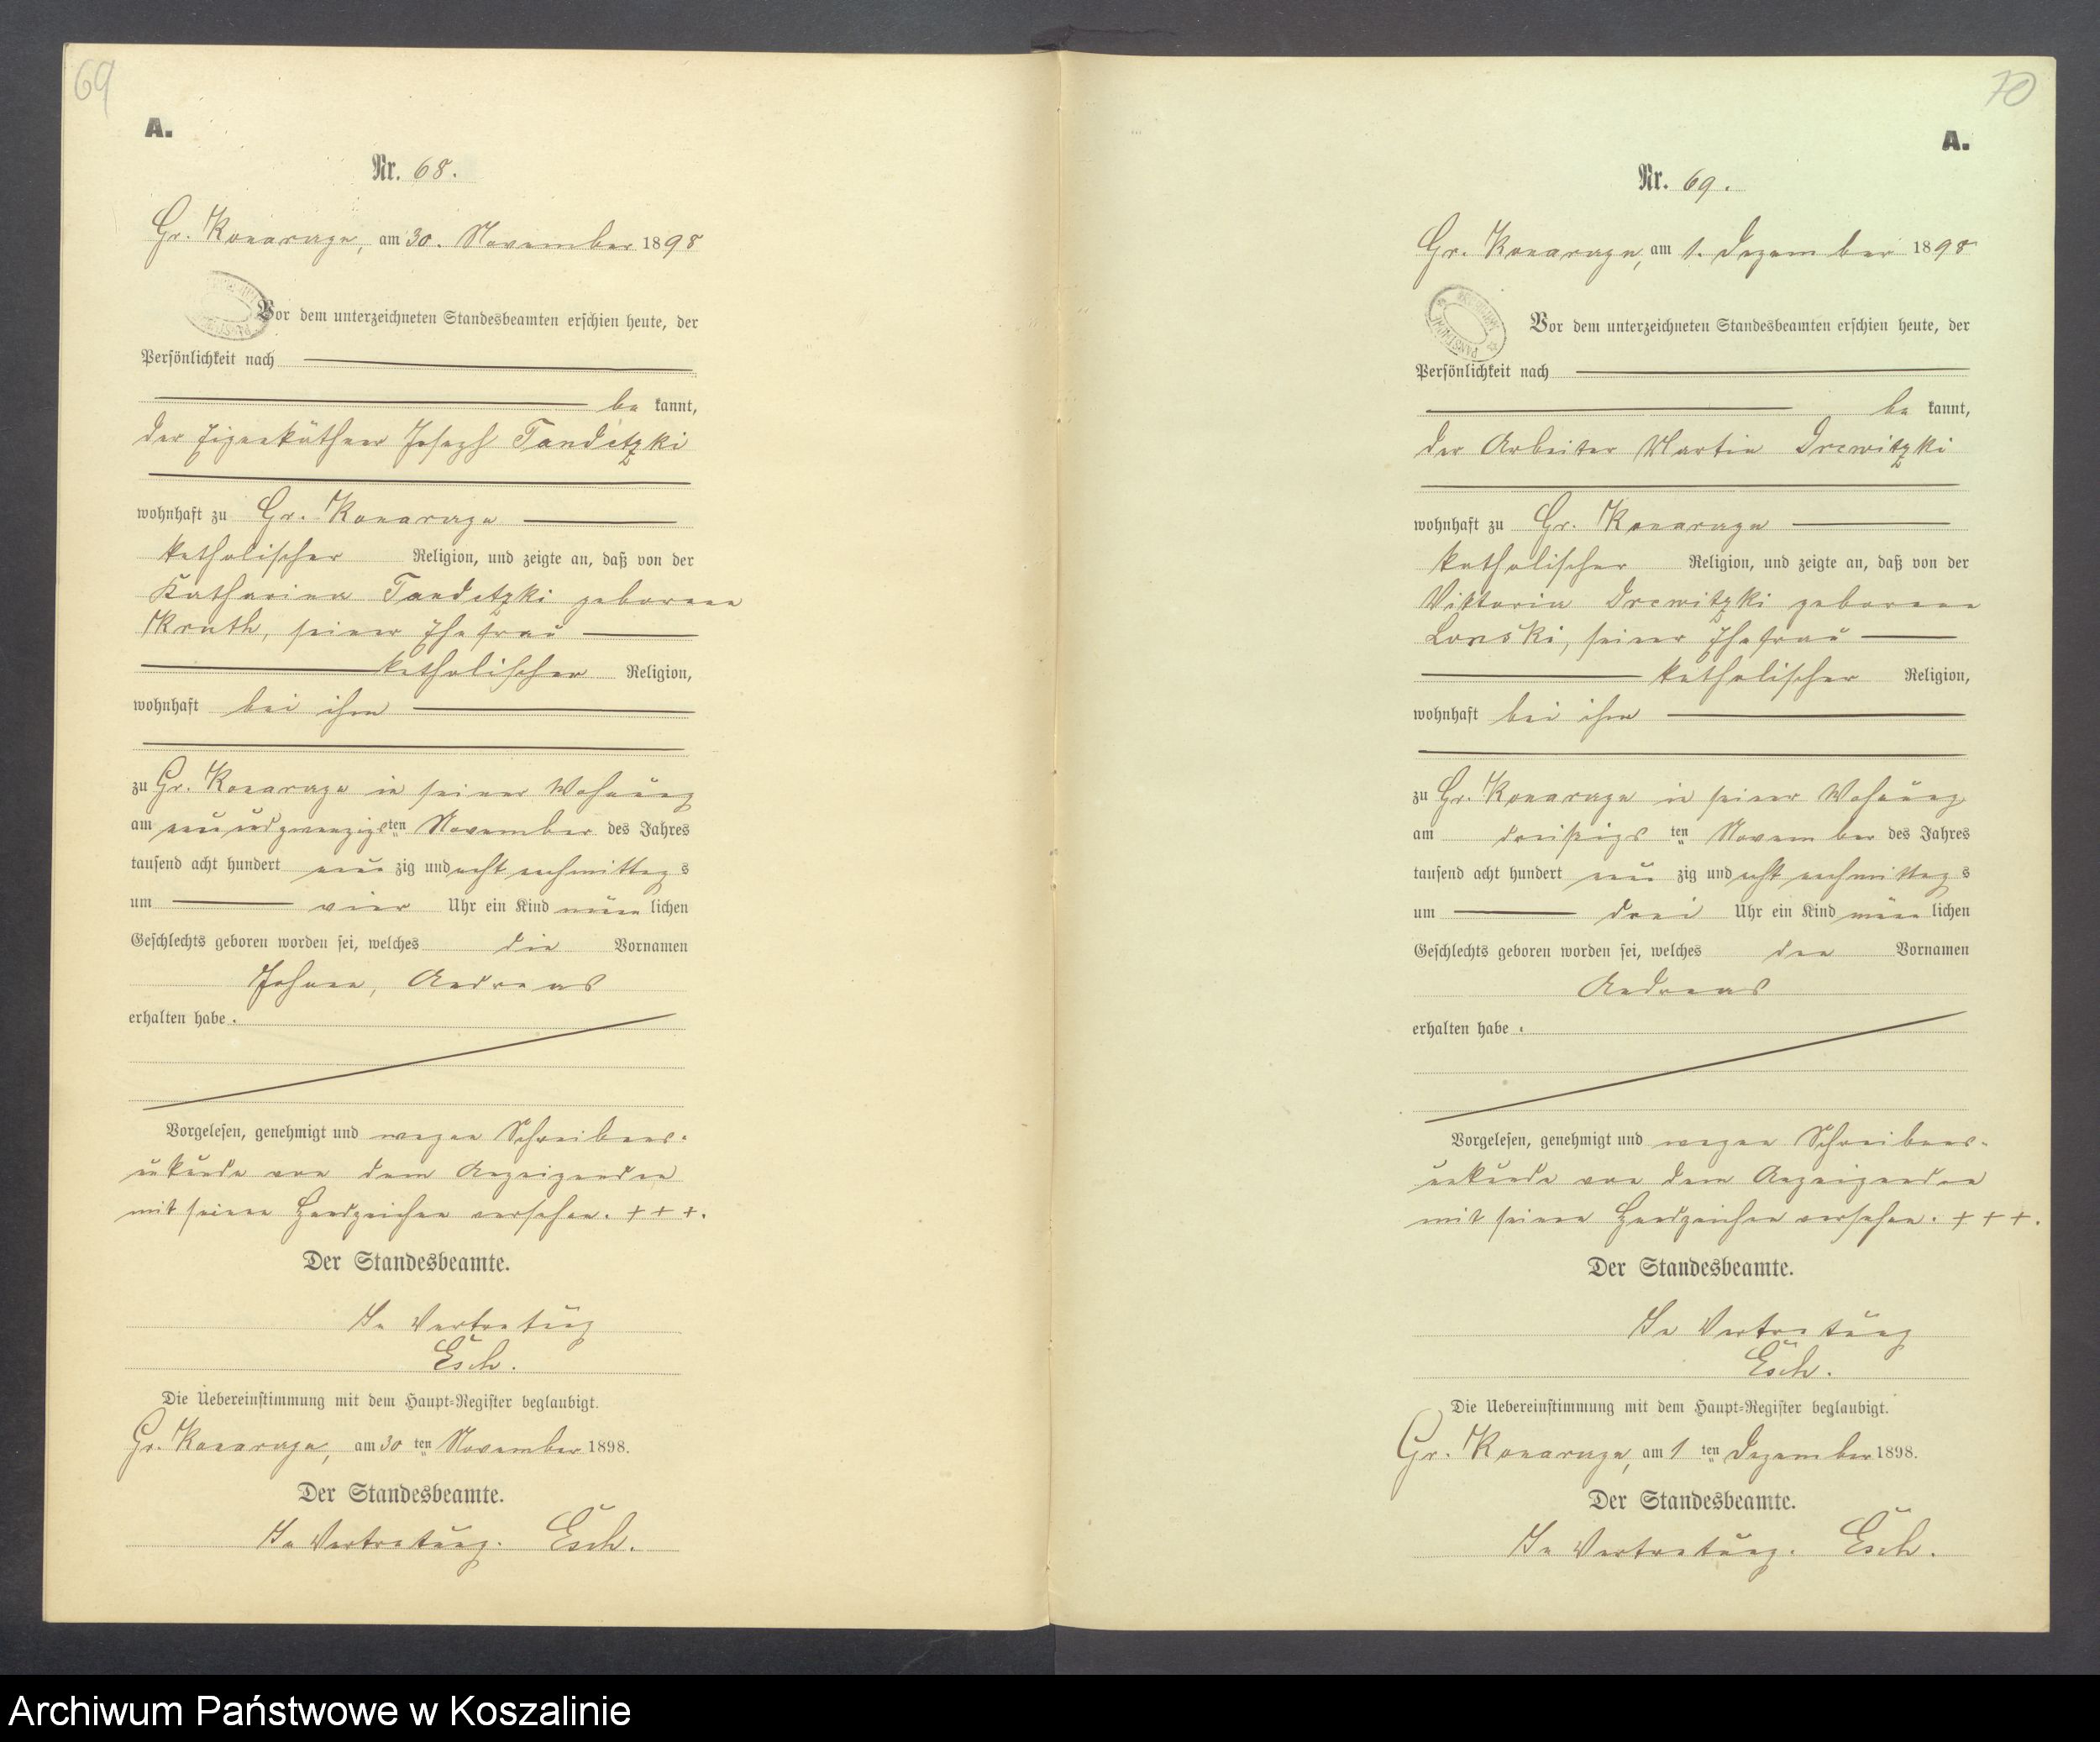 69
A.
Nr. 68.
Gr. Konarczyn, am 30. November 1898
Vor dem unterzeichneten Standesbeamten erschien heute, der
Persönlichkeit nach
be kannt,
der Eigenkäthner Joseph Tandetzki
wohnhaft zu Gr. Konarczyn
katholischer Religion, und zeigte an, daß von der
Katharina Tandetzki geborene
Kruth, seiner Ehefrau
katholischer Religion,
wohnhaft bei ihm
zu Gr. Konarczyn in seiner Wohnung
am neunundzwanzigsten November des Jahres
tausend acht hundert neun zig und acht nachmittags
um vier Uhr ein Kind männlichen
Geschlechts geboren worden sei, welches die Vornamen
Johann, Andreas
erhalten habe.
Vorgelesen, genehmigt und wegen Schreibens-
unkunde von dem Anzeigenden
mit seinem Handzeichen versehen. + + +.
Der Standesbeamte.
In Vertretung
Esch.
Die Uebereinstimmung mit dem Haupt-Register beglaubigt.
Gr. Konarczyn, am 30 ten November 1898.
Der Standesbeamte.
In Vertretung. Esch.
70
A.
Nr. 69.
Gr. Konarczyn, am 1. Dezember 1898
Vor dem unterzeichneten Standesbeamten erschien heute, der
Persönlichkeit nach
be kannt,
der Arbeiter Martin Drewitzki
wohnhaft zu Gr. Konarczyn
katholischer Religion, und zeigte an, daß von der
Viktoria Drewitzki geborene
Lonski, seiner Ehefrau
katholischer Religion,
wohnhaft bei ihm
zu Gr. Konarczyn in seiner Wohnung
am dreißigsten November des Jahres
tausend acht hundert neun zig und acht nachmittags
um drei Uhr ein Kind männlichen
Geschlechts geboren worden sei, welches den Vornamen
Andreas
erhalten habe.
Vorgelesen, genehmigt und wegen Schreibens-
unkunde von dem Anzeigenden
mit seinem Handzeichen versehen. + + +.
Der Standesbeamte.
In Vertretung
Esch.
Die Uebereinstimmung mit dem Haupt-Register beglaubigt.
Gr. Konarczyn, am 1 ten Dezember 1898.
Der Standesbeamte.
In Vertretung. Esch.
Archiwum Państwowe w Koszalinie